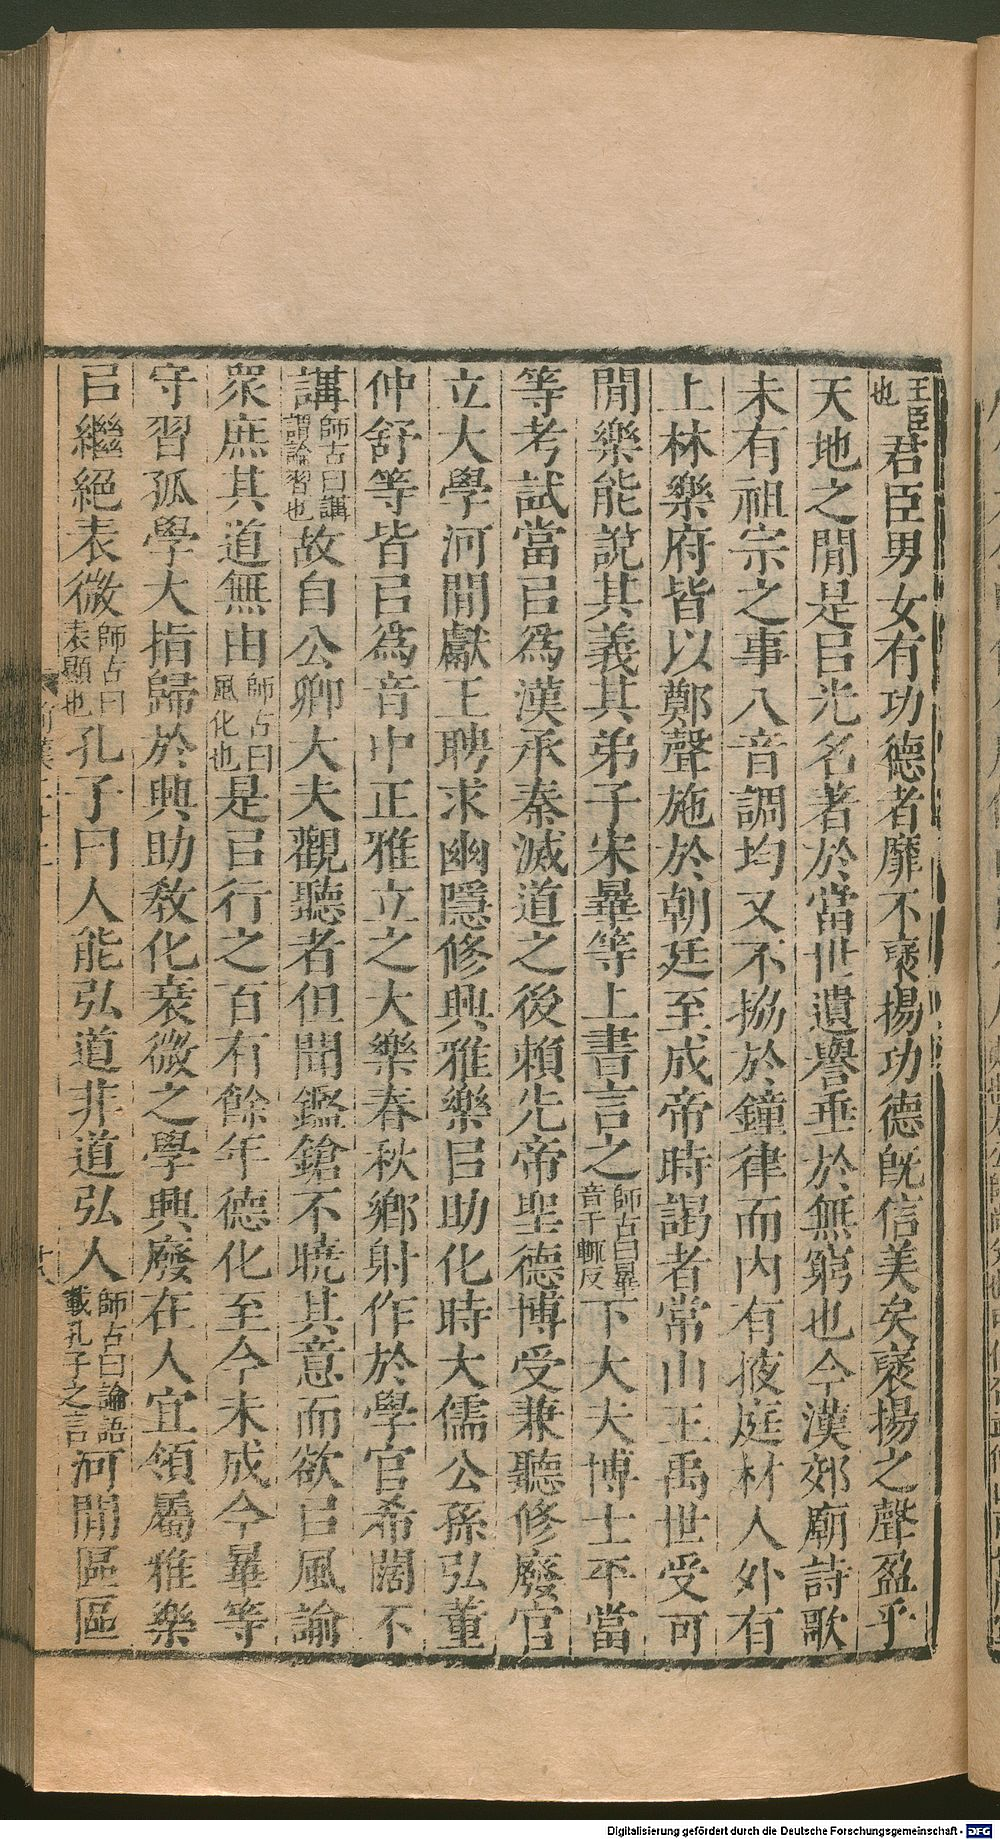 王臣也君臣男女有功德者靡不襃揚功德既信美矣襃揚之聲盈乎
天地之閒是㠯光名著於當世遺譽垂於無窮也今漢郊廟詩歌
未有祖宗之事八音調均又不協於鐘律而內有掖庭材人外有
上林樂府皆以鄭聲施於朝廷至成帝時謁者常山王禹世受河
閒樂能說其義其弟子宋㬥等上書言之師古曰㬥音于輒反下大夫博士平當
等考試當㠯爲漢承秦滅道之後賴先帝聖德博受兼聽修廢官
立大學河閒獻王聘求幽隱修興雅樂㠯助化時大儒公孫弘董
仲舒等皆㠯爲音中正雅立之大樂春秋鄉射作於學官希闊不
講師古曰講謂論習也故自公卿大夫觀聽者但聞鏗鎗不曉其意而欲㠯風諭
眾庶其道無由師古曰風化也是㠯行之百有餘年德化至今未成今㬥等
守習孤學大指歸於興助教化衰微之學興廢在人宜領屬雅樂
㠯繼絕表微師古曰表顯也孔子曰人能弘道非道弘人師古曰論語載孔子之言河閒區區
Digitalisierung gefördert durch die Deutsche Forschungsgemeinschaft - DFG